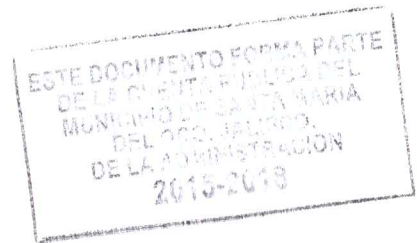 ESTE DOCUMENTO FORMA PARTE
DE LA CUENTA PUBLICA DEL
MUNICIPIO DE SANTA MARIA
DEL ORO, JALISCO,
DE LA ADMINISTRACIÓN
2015-2018